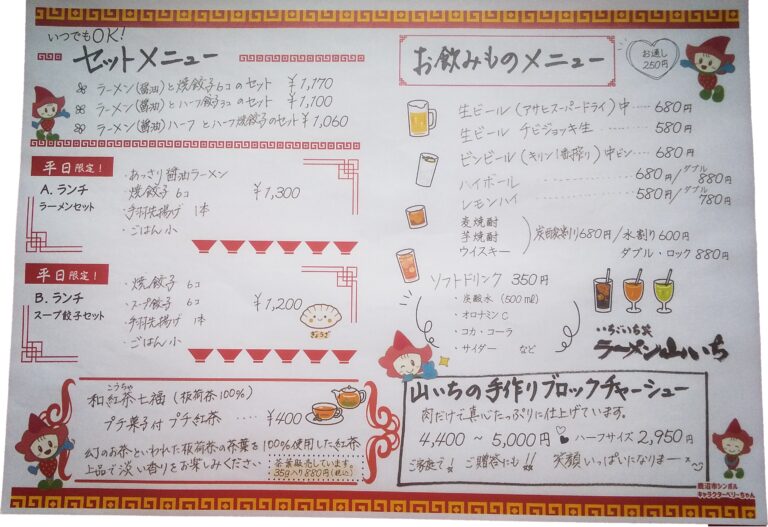 いつでもOK!
セットメニュー
ラーメン(醤油)と焼餃子6コのセット ¥1,170
ラーメン(醤油)とハーフ餃子3コのセット ¥1,100
ラーメン(醤油)ハーフとハーフ焼餃子のセット ¥1,060
平日限定!
A.ランチ
ラーメンセット
・あっさり醤油ラーメン
・焼餃子 6コ
・手羽先揚げ 1本
・ごはん小
¥1,300
平日限定!
B.ランチ
スープ餃子セット
・焼餃子 6コ
・スープ餃子 6コ
・手羽先揚げ 1本
・ごはん小
¥1,200
ぎょうざ
こうちゃ
和紅茶七福(板荷茶100%)
プチ菓子付プチ紅茶 ‥‥ ¥400
幻のお茶といわれた板荷茶の茶葉を100%使用した紅茶
上品で淡い香りをお楽しみください
茶葉販売しています。
35g入り880円(税込)
お飲みものメニュー
お通し
250円
生ビール(アサヒスーパードライ)中 ‥‥ 680円
生ビール チビジョッキ生 ‥‥ 580円
ビンビール(キリン1番搾り)中ビン ‥ 680円
ハイボール 680円/ダブル880円
レモンハイ 580円/ダブル780円
麦焼酎
芋焼酎
ウイスキー
炭酸割り680円/水割り600円
ダブル・ロック 880円
ソフトドリンク 350円
・炭酸水(500ml)
・オロナミンC
・コカ・コーラ
・サイダー など
いちごいち笑
ラーメン山いち
山いちの手作りブロックチャーシュー
肉だけで真心たっぷりに仕上げています。
4,400～5,000円 ♡ ハーフサイズ 2,950円
ご家庭で! ご贈答にも!! 笑顔いっぱいになりまーす
鹿沼市シンボル
キャラクターベリーちゃん